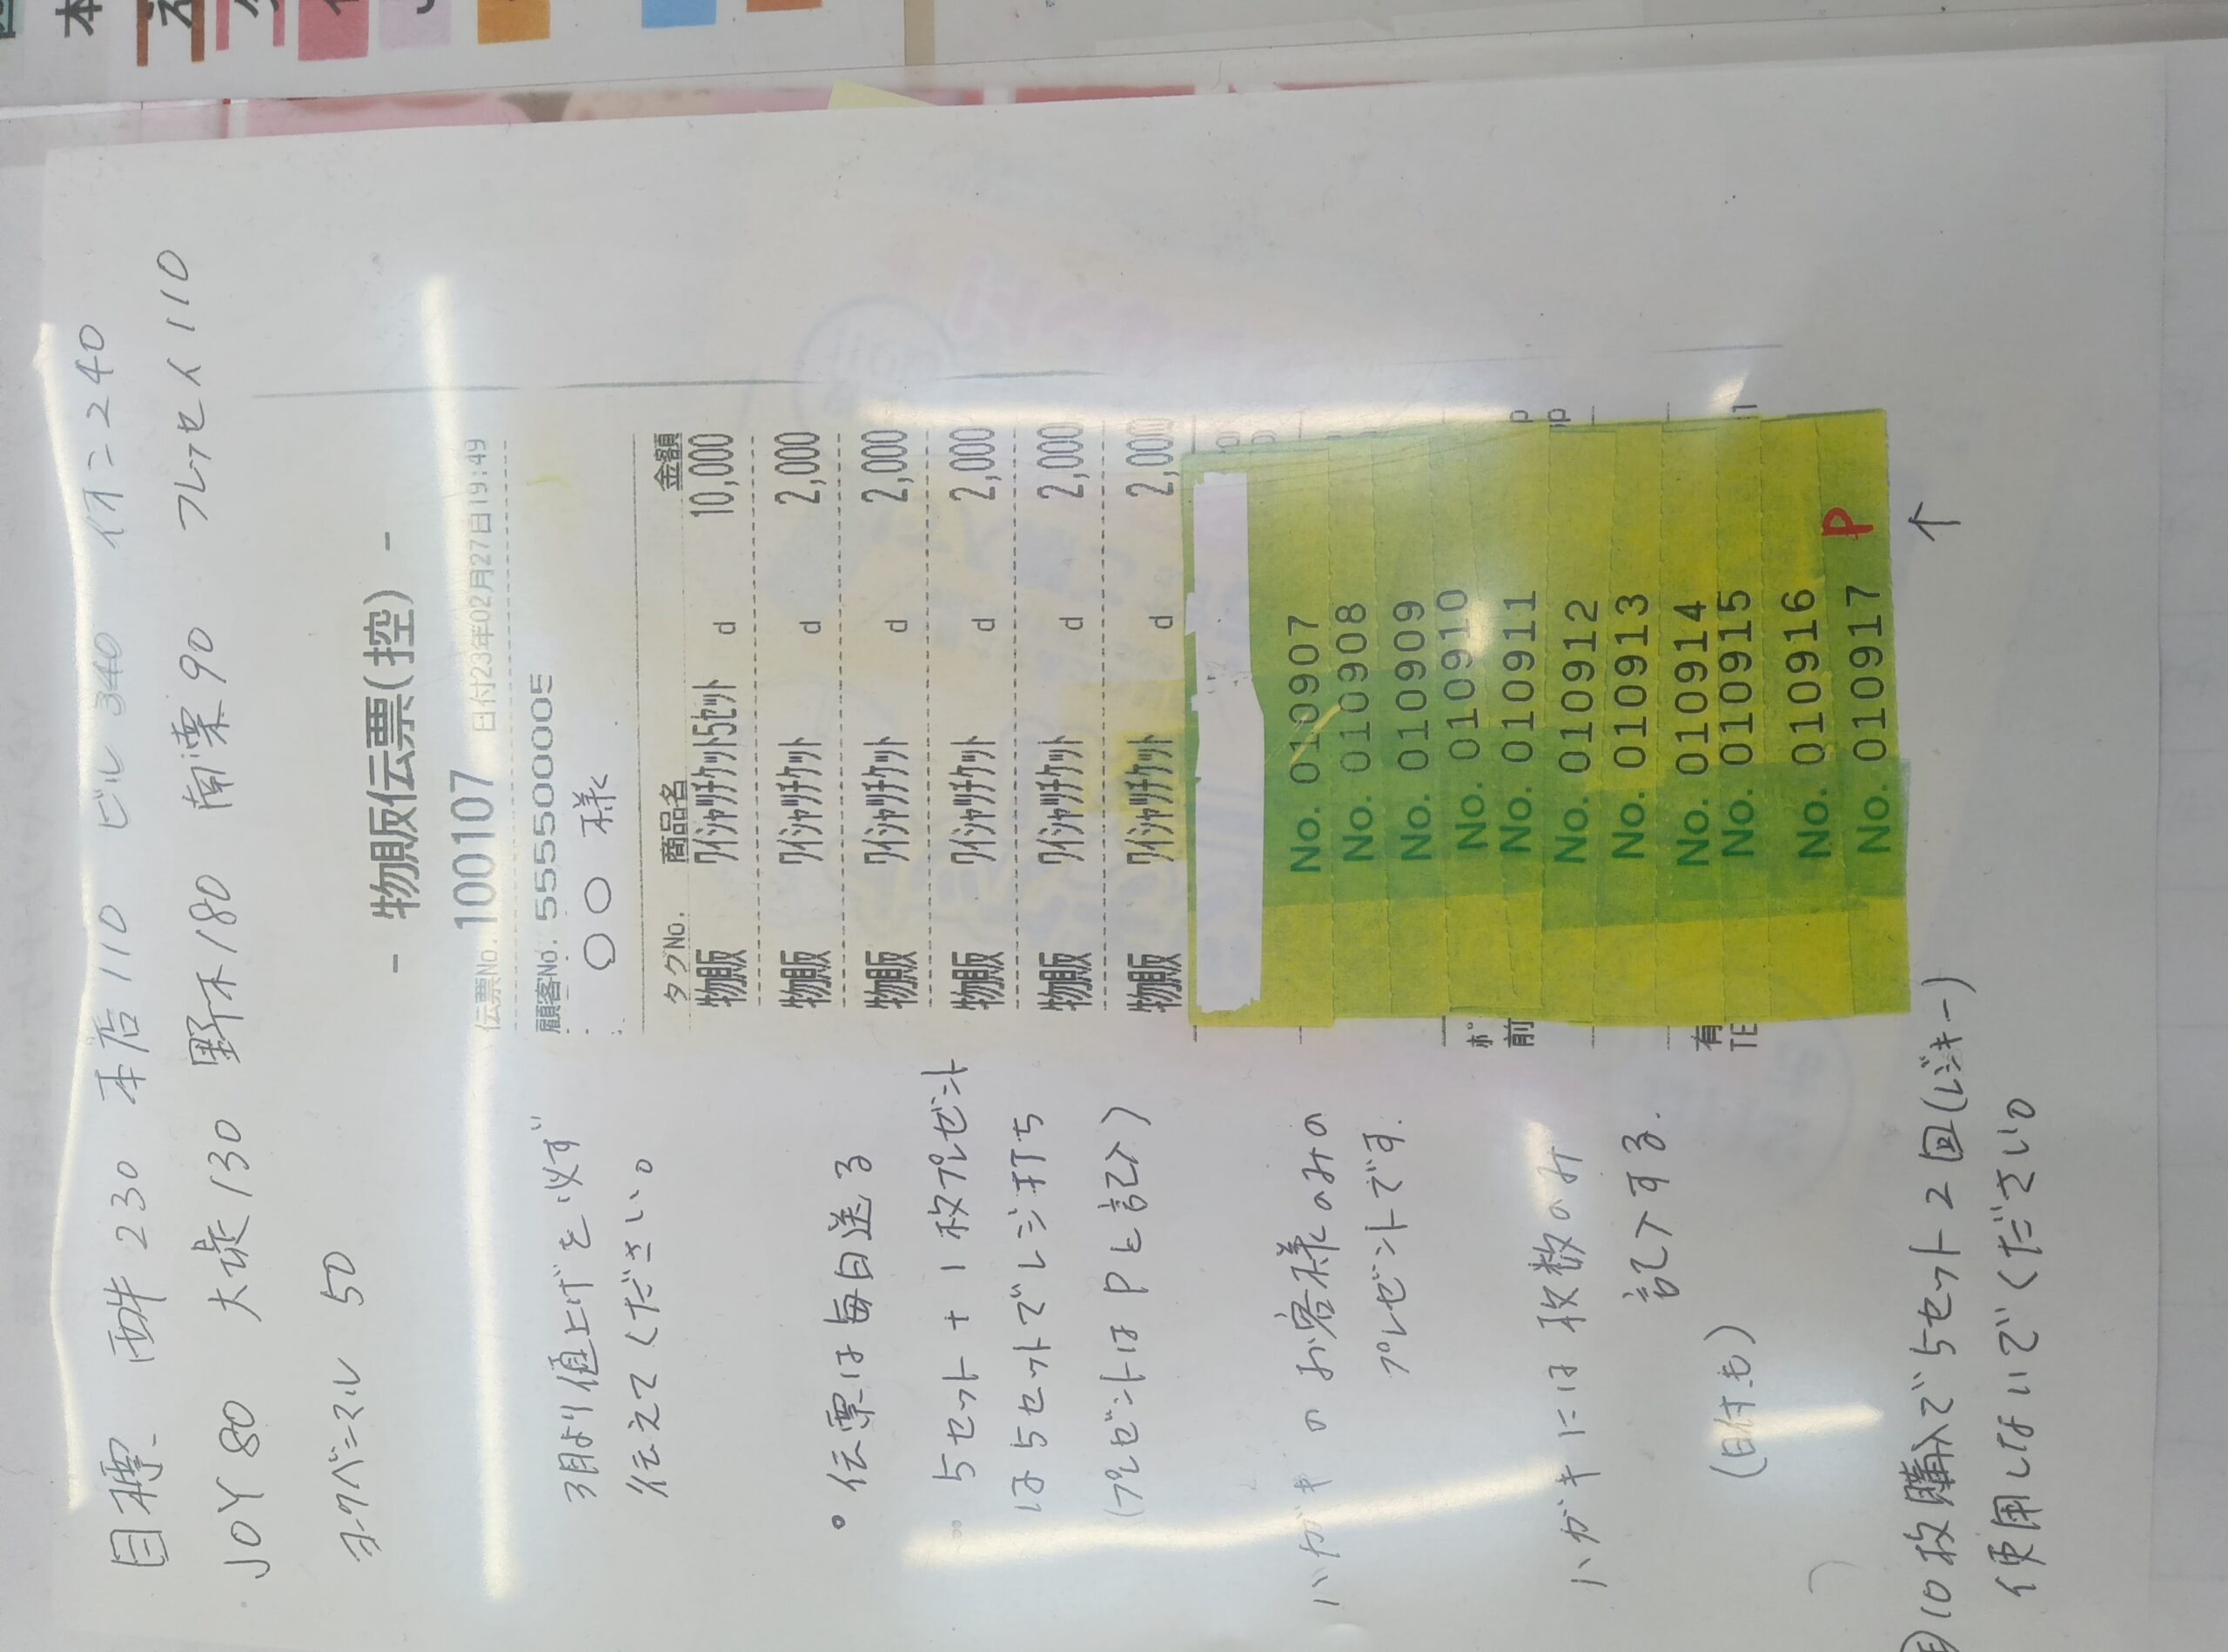 目標 西牛230 本店110 ビル340 イオン240
JOY80 大袋130 野木180 南栗90 フレッセイ110
ヨークベニマル 50
- 物販伝票(控) -
伝票No. 100107 日付23年02月27日19:49
顧客No. 555500005
○○様
タグNo. 商品名 金額
物販 ワイシャツチケット5セット d 10,000
物販 ワイシャツチケット d 2,000
物販 ワイシャツチケット d 2,000
物販 ワイシャツチケット d 2,000
物販 ワイシャツチケット d 2,000
物販 ワイシャツチケット d 2,000
No. 010907
No. 010908
No. 010909
No. 010910
No. 010911
No. 010912
No. 010913
No. 010914
No. 010915
No. 010916
No. 010917 P
↑
3月より値上げを必ず
伝えてください。
• 伝票は毎日送る
5セット+1枚プレゼント
は5セットでレジ打ち
(プレゼントはPと記入)
ハガキのお客様のみの
プレゼントです.
ハガキには枚数のみ
記入する.
(日付も)
10枚購入で5セット2回(レジキー)
使用しないでください。